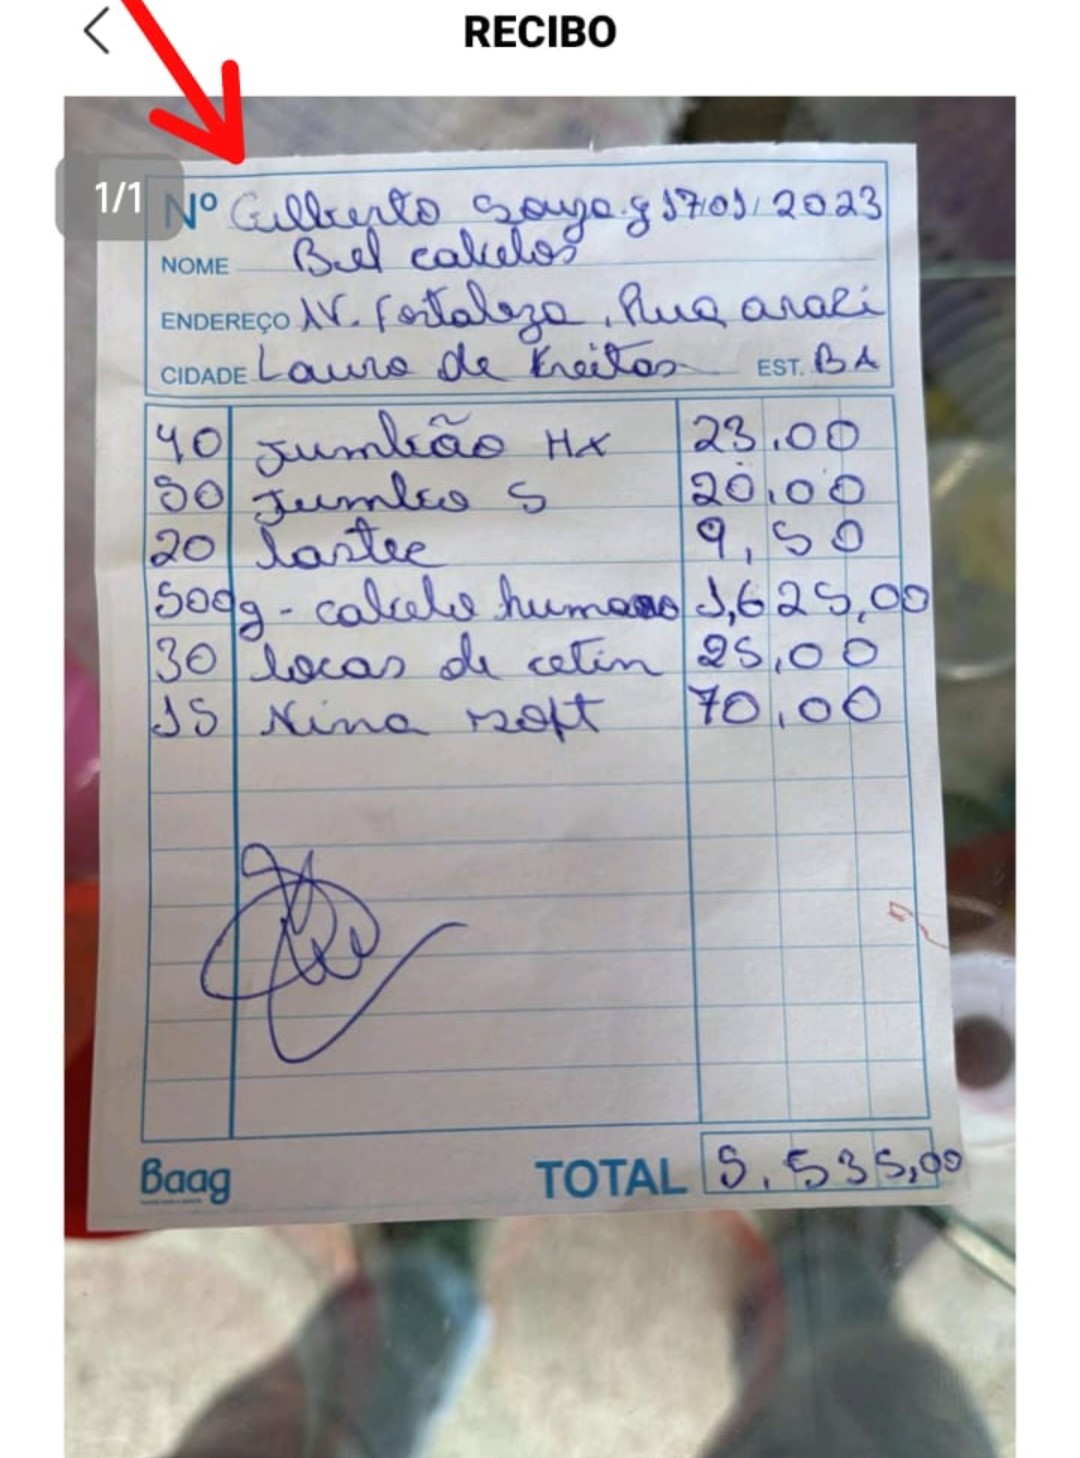 RECIBO
1/1
Nº Gilberto Souza g 17/01/2023
NOME Bel cabelos
ENDEREÇO AV. Fortaleza, Rua araci
CIDADE Lauro de Freitas EST. BA
40 Jumbão HX 23,00
50 Jumbo S 20,00
20 lastec 9,50
500g - cabelo humano 1,625,00
30 tocas de cetin 25,00
15 Nina soft 70,00
Baag
TOTAL 5.535,00